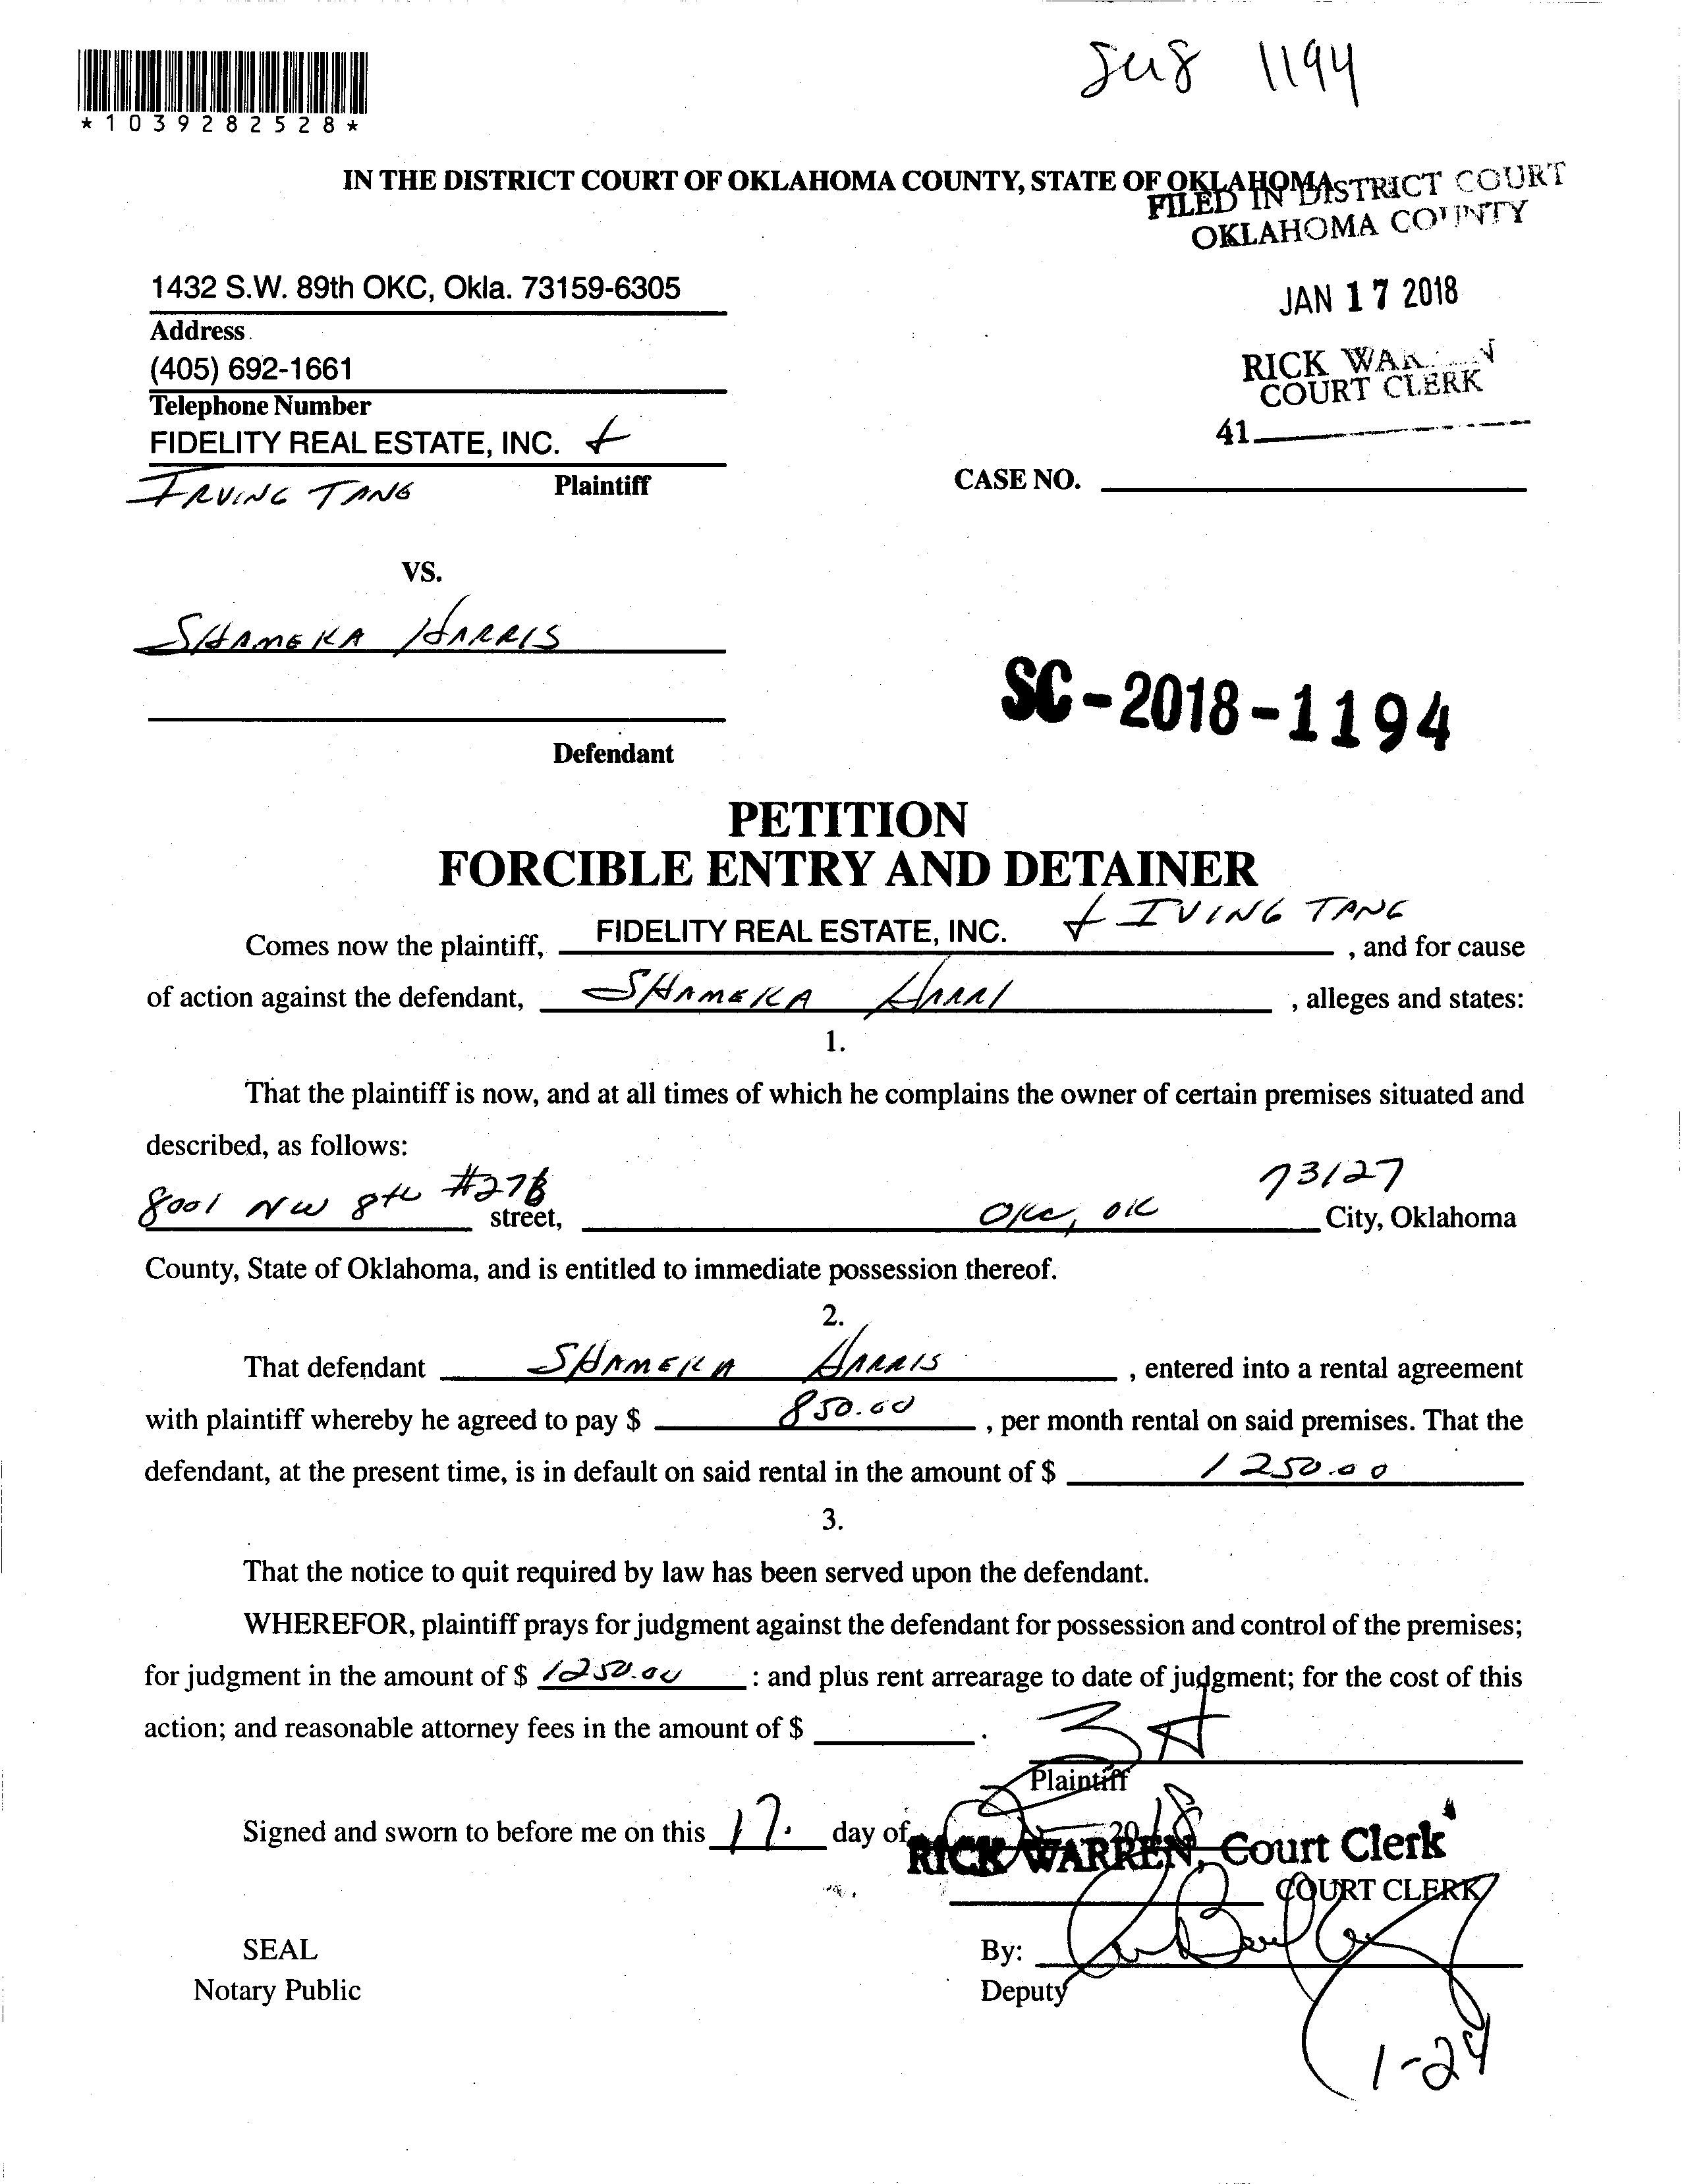 Ju8 1194
*1039282528*
IN THE DISTRICT COURT OF OKLAHOMA COUNTY, STATE OF OKLAHOMA
FILED IN DISTRICT COURT
OKLAHOMA COUNTY
1432 S.W. 89th OKC, Okla. 73159-6305
JAN 17 2018
Address
(405) 692-1661
RICK WARREN
COURT CLERK
Telephone Number
FIDELITY REAL ESTATE, INC. +
41
IRVING TANG Plaintiff
CASE NO.
VS.
SHAMEKA HARRIS
SC-2018-1194
Defendant
PETITION
FORCIBLE ENTRY AND DETAINER
Comes now the plaintiff, FIDELITY REAL ESTATE, INC. + IVING TANG, and for cause
of action against the defendant, SHAMEKA HARRI, alleges and states:
1.
That the plaintiff is now, and at all times of which he complains the owner of certain premises situated and
described, as follows:
8001 NW 8th #27B street, OKC, OK 73127 City, Oklahoma
County, State of Oklahoma, and is entitled to immediate possession thereof.
2.
That defendant SHAMEKA HARRIS, entered into a rental agreement
with plaintiff whereby he agreed to pay $ 850.00, per month rental on said premises. That the
defendant, at the present time, is in default on said rental in the amount of $ 1250.00
3.
That the notice to quit required by law has been served upon the defendant.
WHEREFOR, plaintiff prays for judgment against the defendant for possession and control of the premises;
for judgment in the amount of $ 1250.00 : and plus rent arrearage to date of judgment; for the cost of this
action; and reasonable attorney fees in the amount of $ .
Plaintiff
Signed and sworn to before me on this 17. day of 2018
RICK WARREN, Court Clerk
COURT CLERK
SEAL
By:
Notary Public
Deputy
1-24